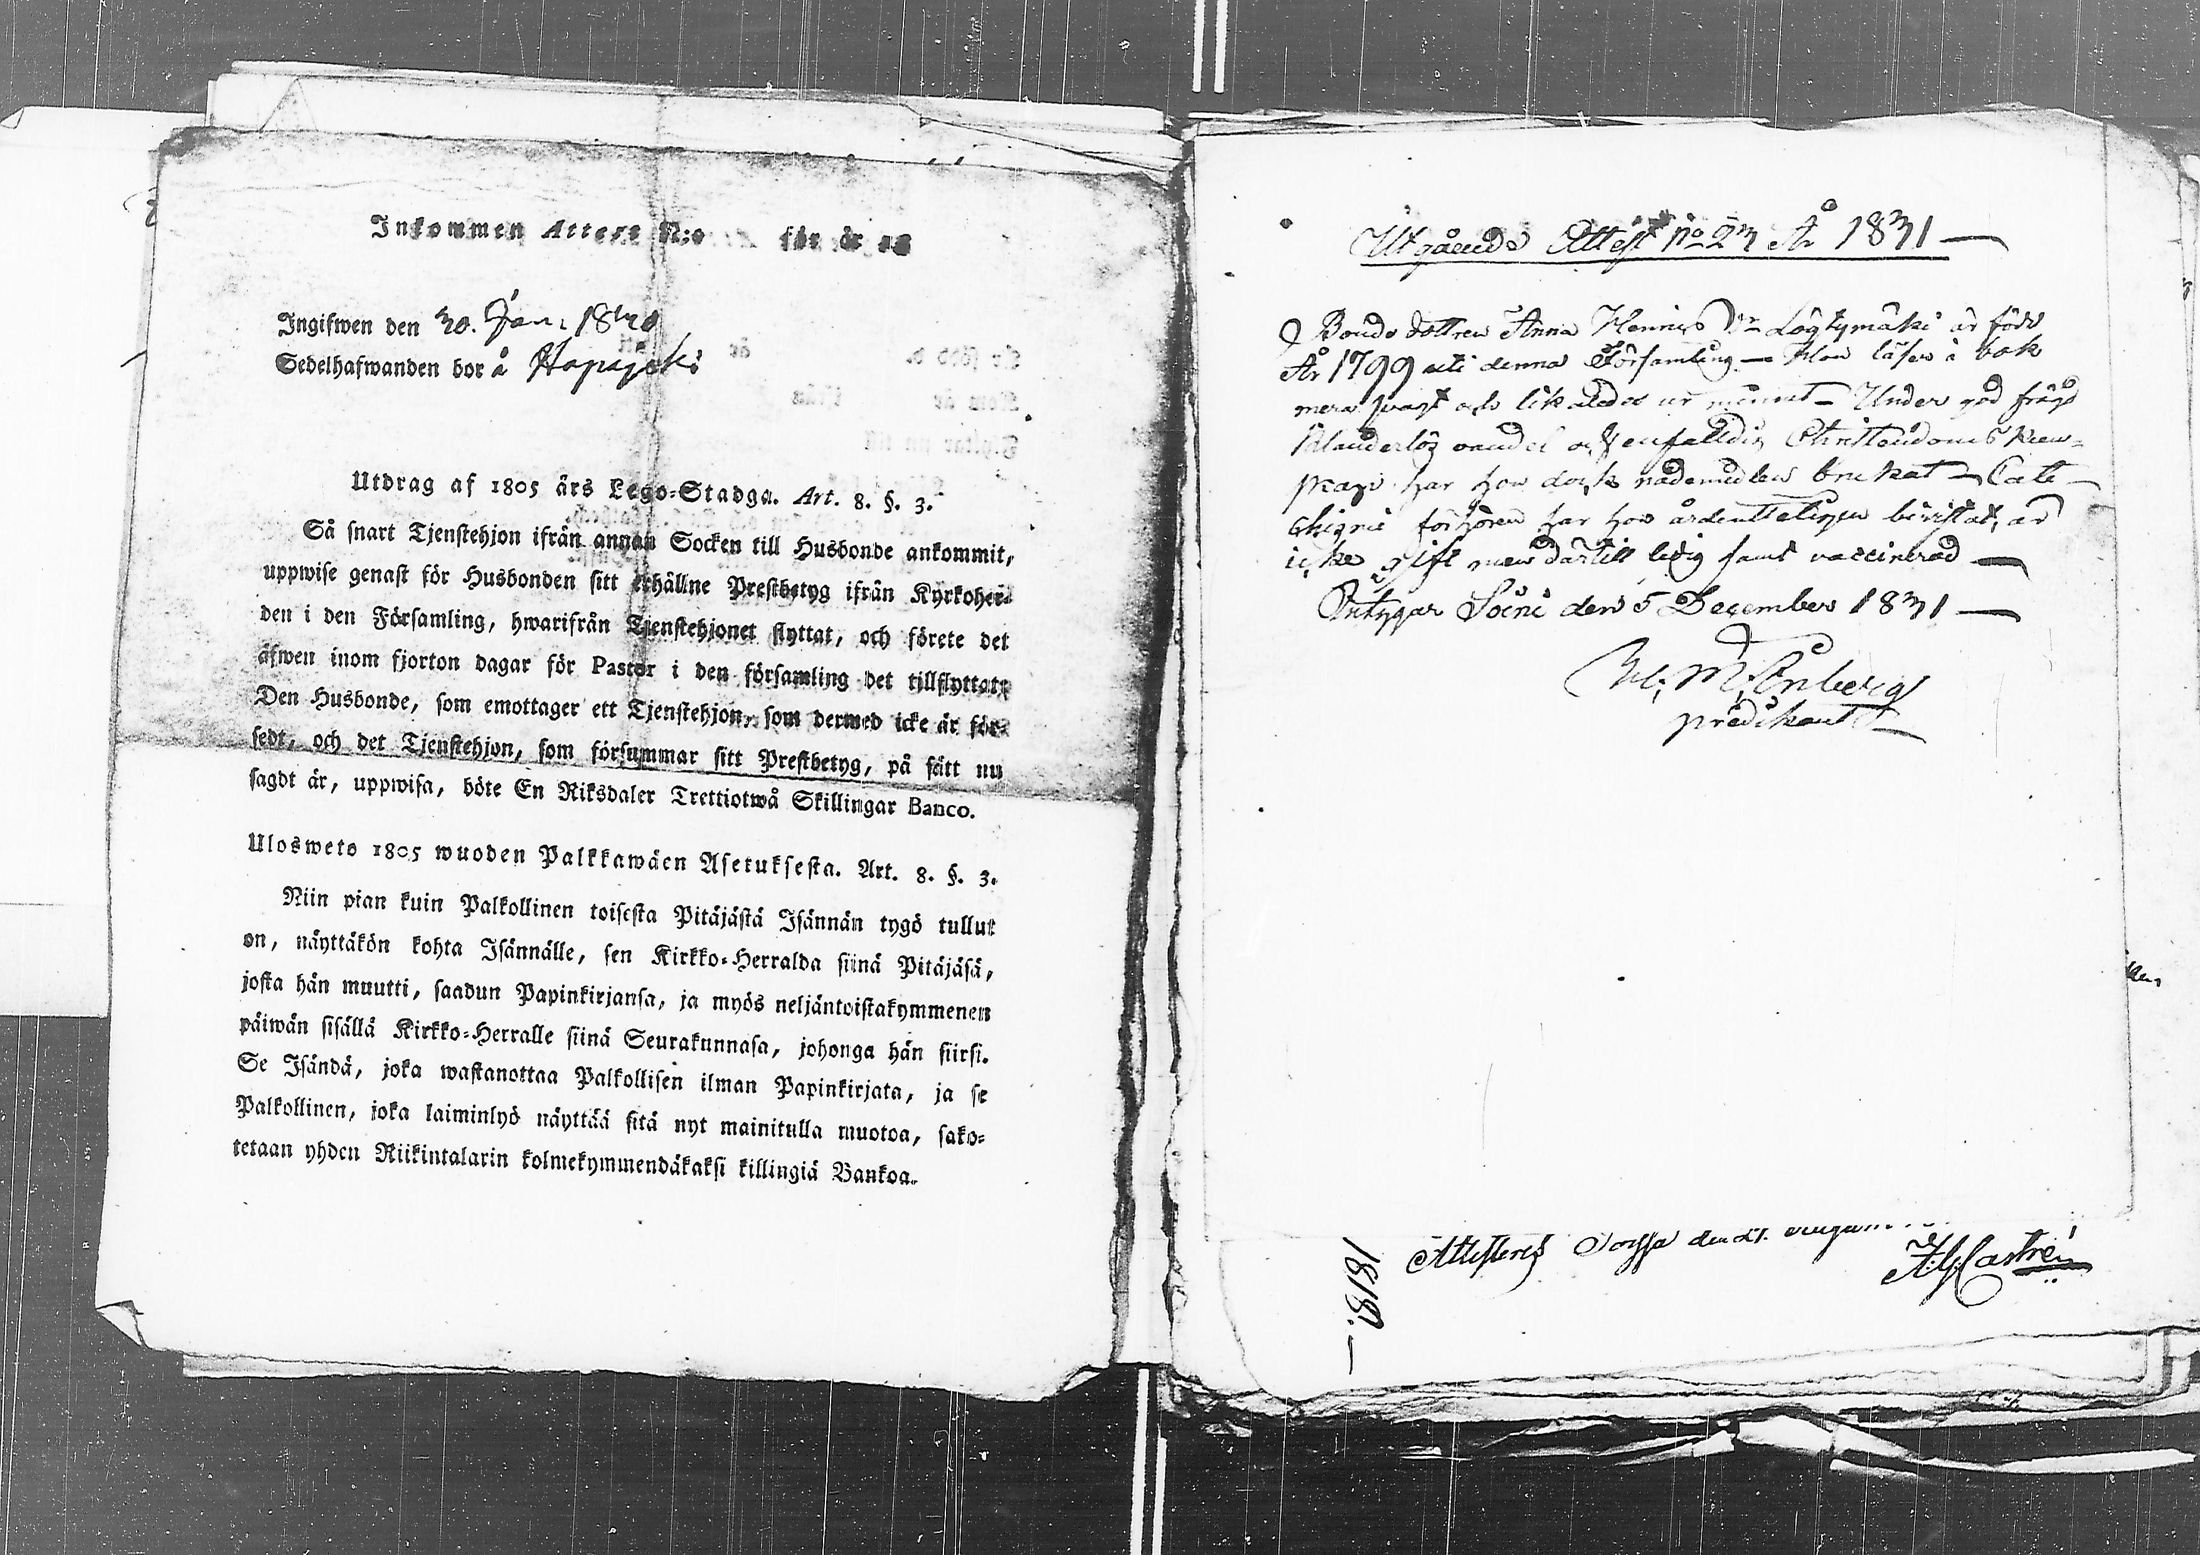 Inkommen Attest N:o för år 18
Ingifwen den 30. Jan. 18
Sedelhafwanden bor å Hapajoki
Utdrag af 1805 års Lego-Stadga. Art. 8. §. 3.
Så snart Tjenstehjon ifrån annan Socken till Husbonde ankommit,
uppwise genast för Husbonden sitt erhållne Prestbetyg ifrån Kyrkoher-
den i den Församling, hwarifrån Tjenstehjonet flyttat, och förete det
äfwen inom fjorton dagar för Pastor i den församling det tillflyttat.
Den Husbonde, som emottager ett Tjenstehjon, som dermed icke är för-
sedt, och det Tjenstehjon, som försummar sitt Prestbetyg, på sätt nu
sagdt är, uppwisa, böte En Riksdaler Trettiotwå Skillingar Banco.
Ulosweto 1805 wuoden Palkkawäen Asetuksesta. Art. 8. §. 3.
Niin pian kuin Palkollinen toisesta Pitäjästä Isännän tygö tullut
on, näyttäkön kohta Isännälle, sen Kirkko-Herralda siinä Pitäjäsä,
josta hän muutti, saadun Papinkirjansa, ja myös neljäntoistakymmenen
päiwän sisällä Kirkko-Herralle siinä Seurakunnasa, johonga hän siirsi.
Se Isändä, joka wastanottaa Palkollisen ilman Papinkirjata, ja se
Palkollinen, joka laiminlyö näyttää sitä nyt mainitulla muotoa, sako-
tetaan yhden Riikintalarin kolmekymmendäkaksi killingiä Bankoa.
Utgående Attest No 23 År 1831
Bonde dottren Anna Henrics Dr Lögtymäki är född
År 1799 uti denna Församling — Hon läser i bok
mera svagt och likaledes ur minnet — Under god frägd
klanderlös vandel och enfalldig Christendoms kun-
skap har hon dock nådemedlen brukat — Cate-
chismi förhören har hon ärdentteligen bivistat, är
icke gift men därtill ledig samt vaccinerad —
Intygar Soini den 5 December 1831 —
M. Önberg
prädikant
Attesteras den 21.
Castrén
1818. —